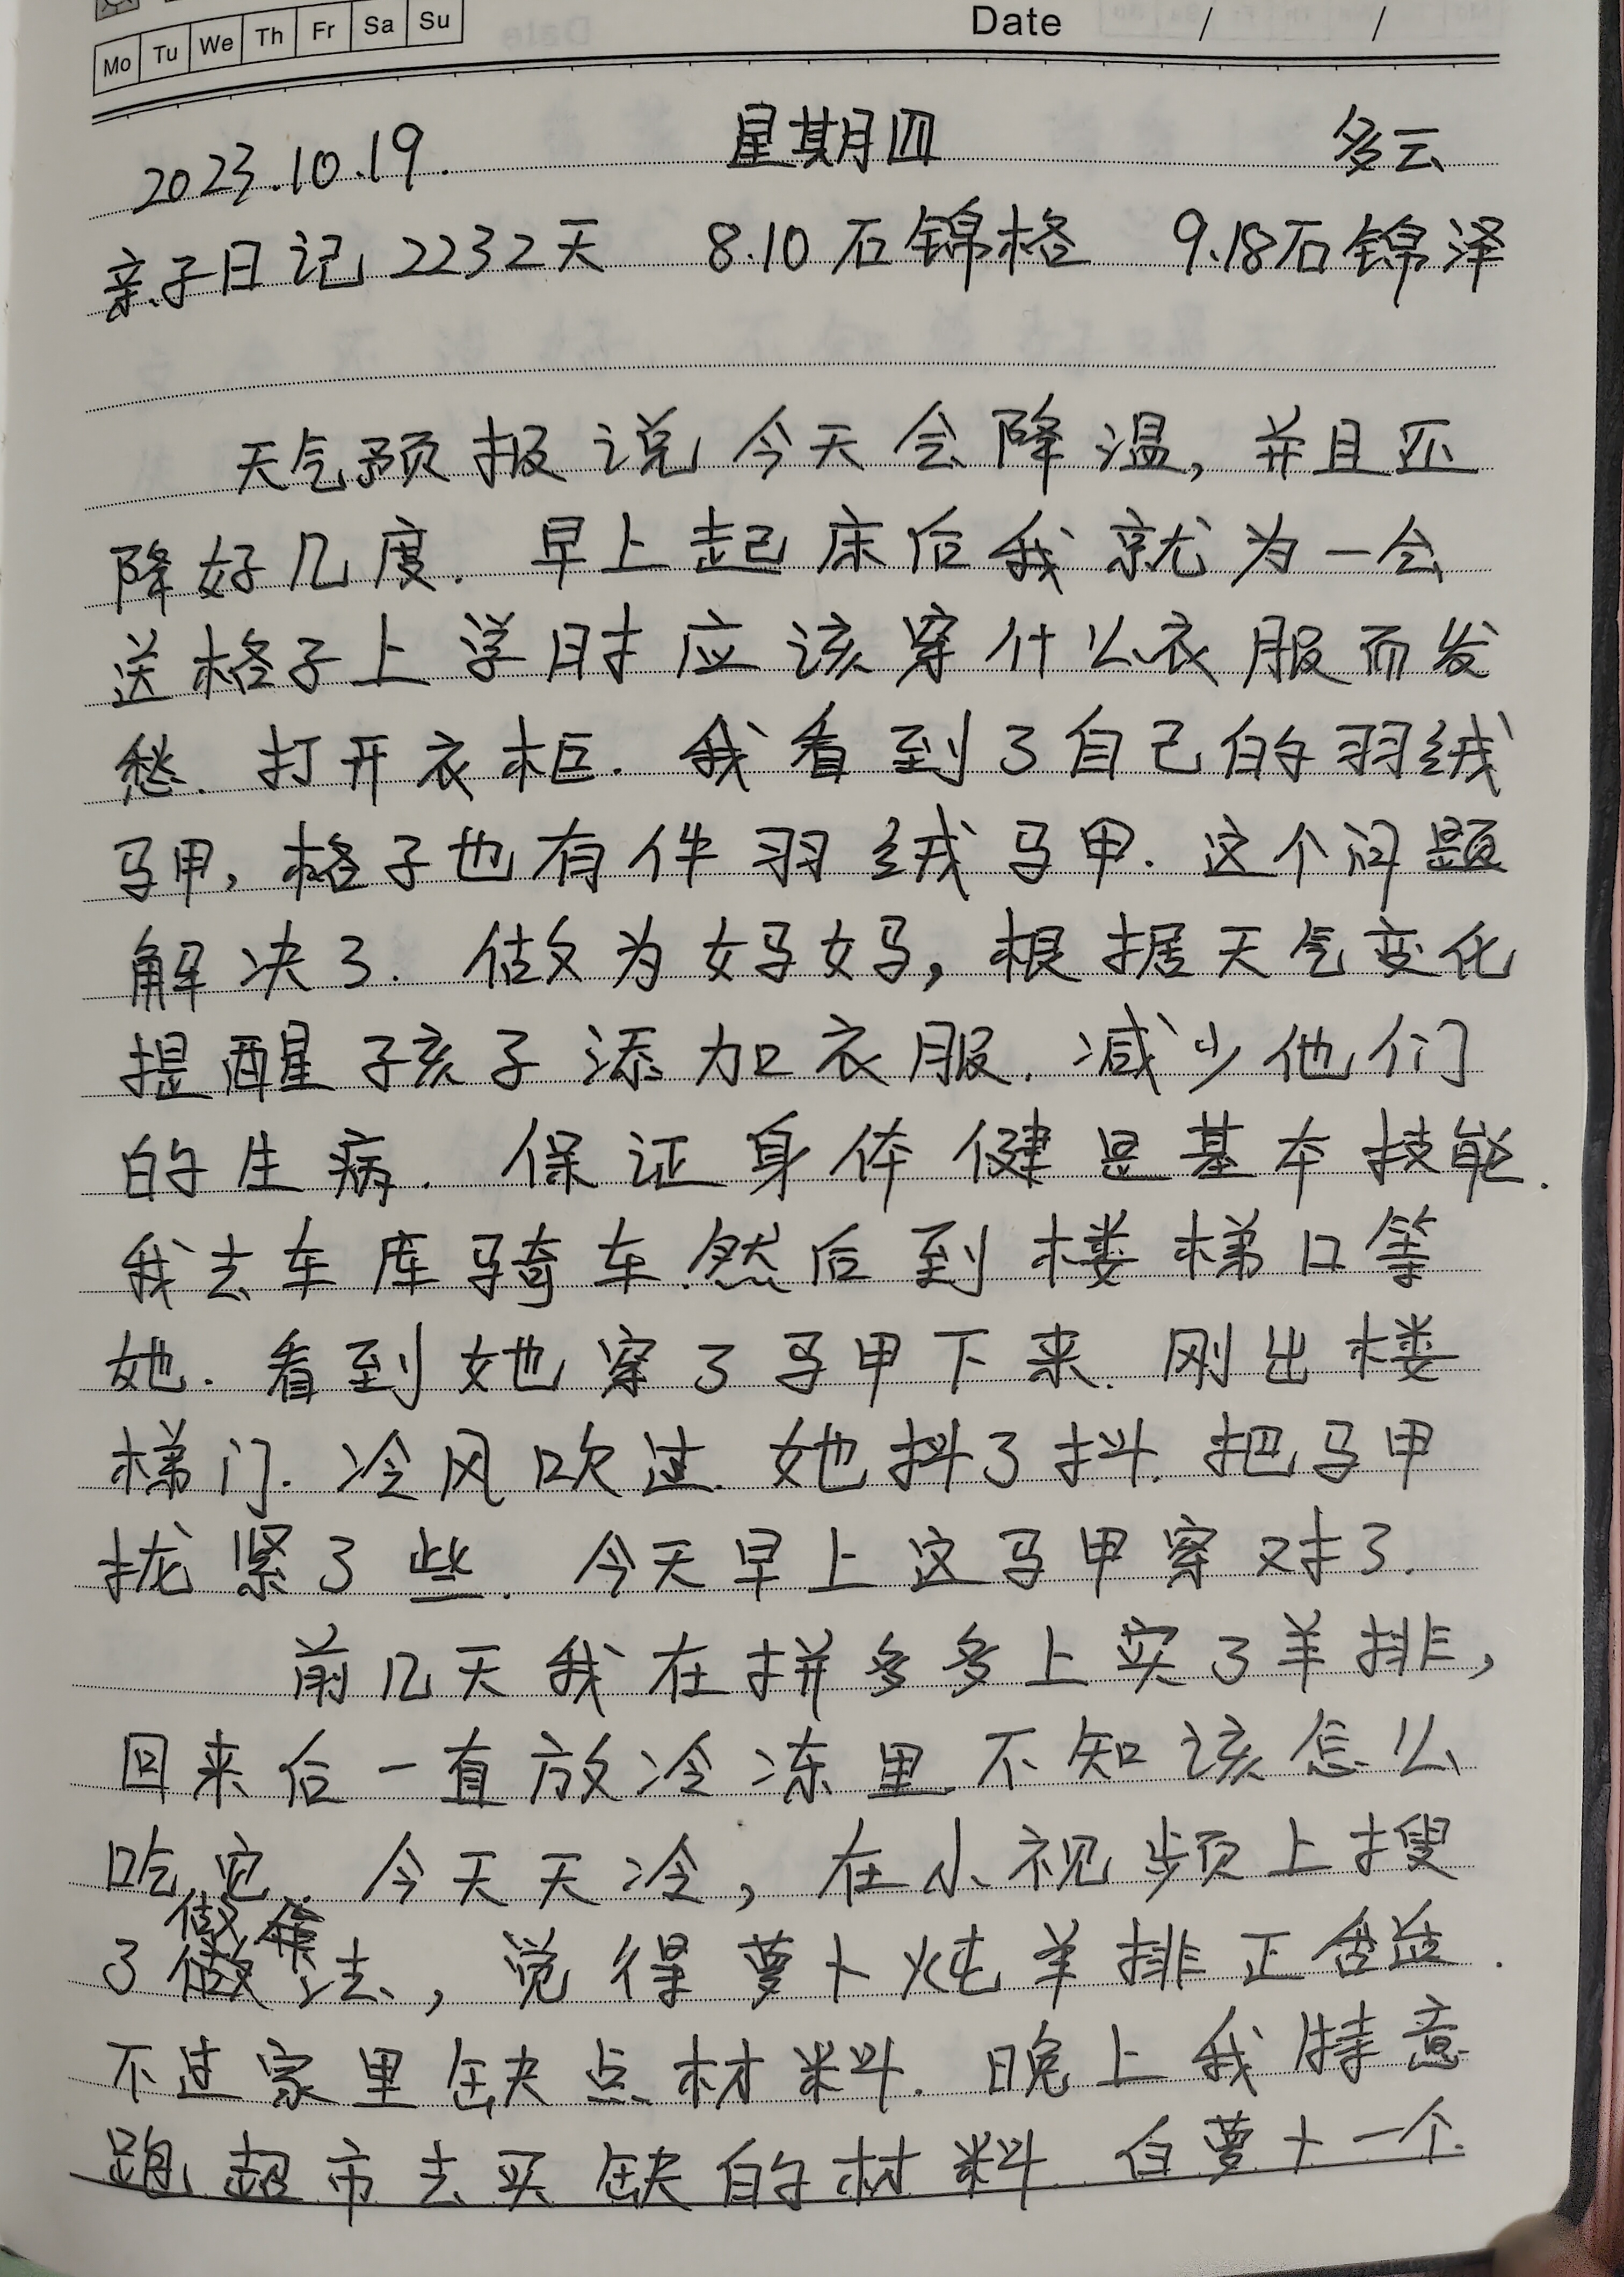 Mo Tu We Th Fr Sa Su Date / /
2023.10.19. 星期四 多云
亲子日记2232天 8.10石锦格 9.18石锦泽
天气预报说今天会降温,并且还
降好几度.早上起床后我就为一会
送格子上学时应该穿什么衣服而发
愁.打开衣柜.我看到了自己的羽绒
马甲,格子也有件羽绒马甲.这个问题
解决了.做为妈妈,根据天气变化
提醒孩子添加衣服.减少他们
的生病.保证身体健是基本技能.
我去车库骑车.然后到楼梯口等
她.看到她穿了马甲下来.刚出楼
梯门.冷风吹过.她抖了抖.把马甲
拢紧了些.今天早上这马甲穿对了.
前几天我在拼多多上买了羊排,
回来后一直放冷冻里.不知该怎么
吃它.今天天冷,在小视频上搜
做
了做法,觉得萝卜炖羊排正合适.
不过家里缺点材料.晚上我特意
跑超市去买缺的材料.白萝卜一个.